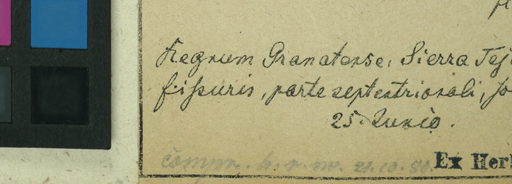 Regnum Granatense, Sierra Tej
fissuris, parte septentrionali,
25. Junio.
Ex Her